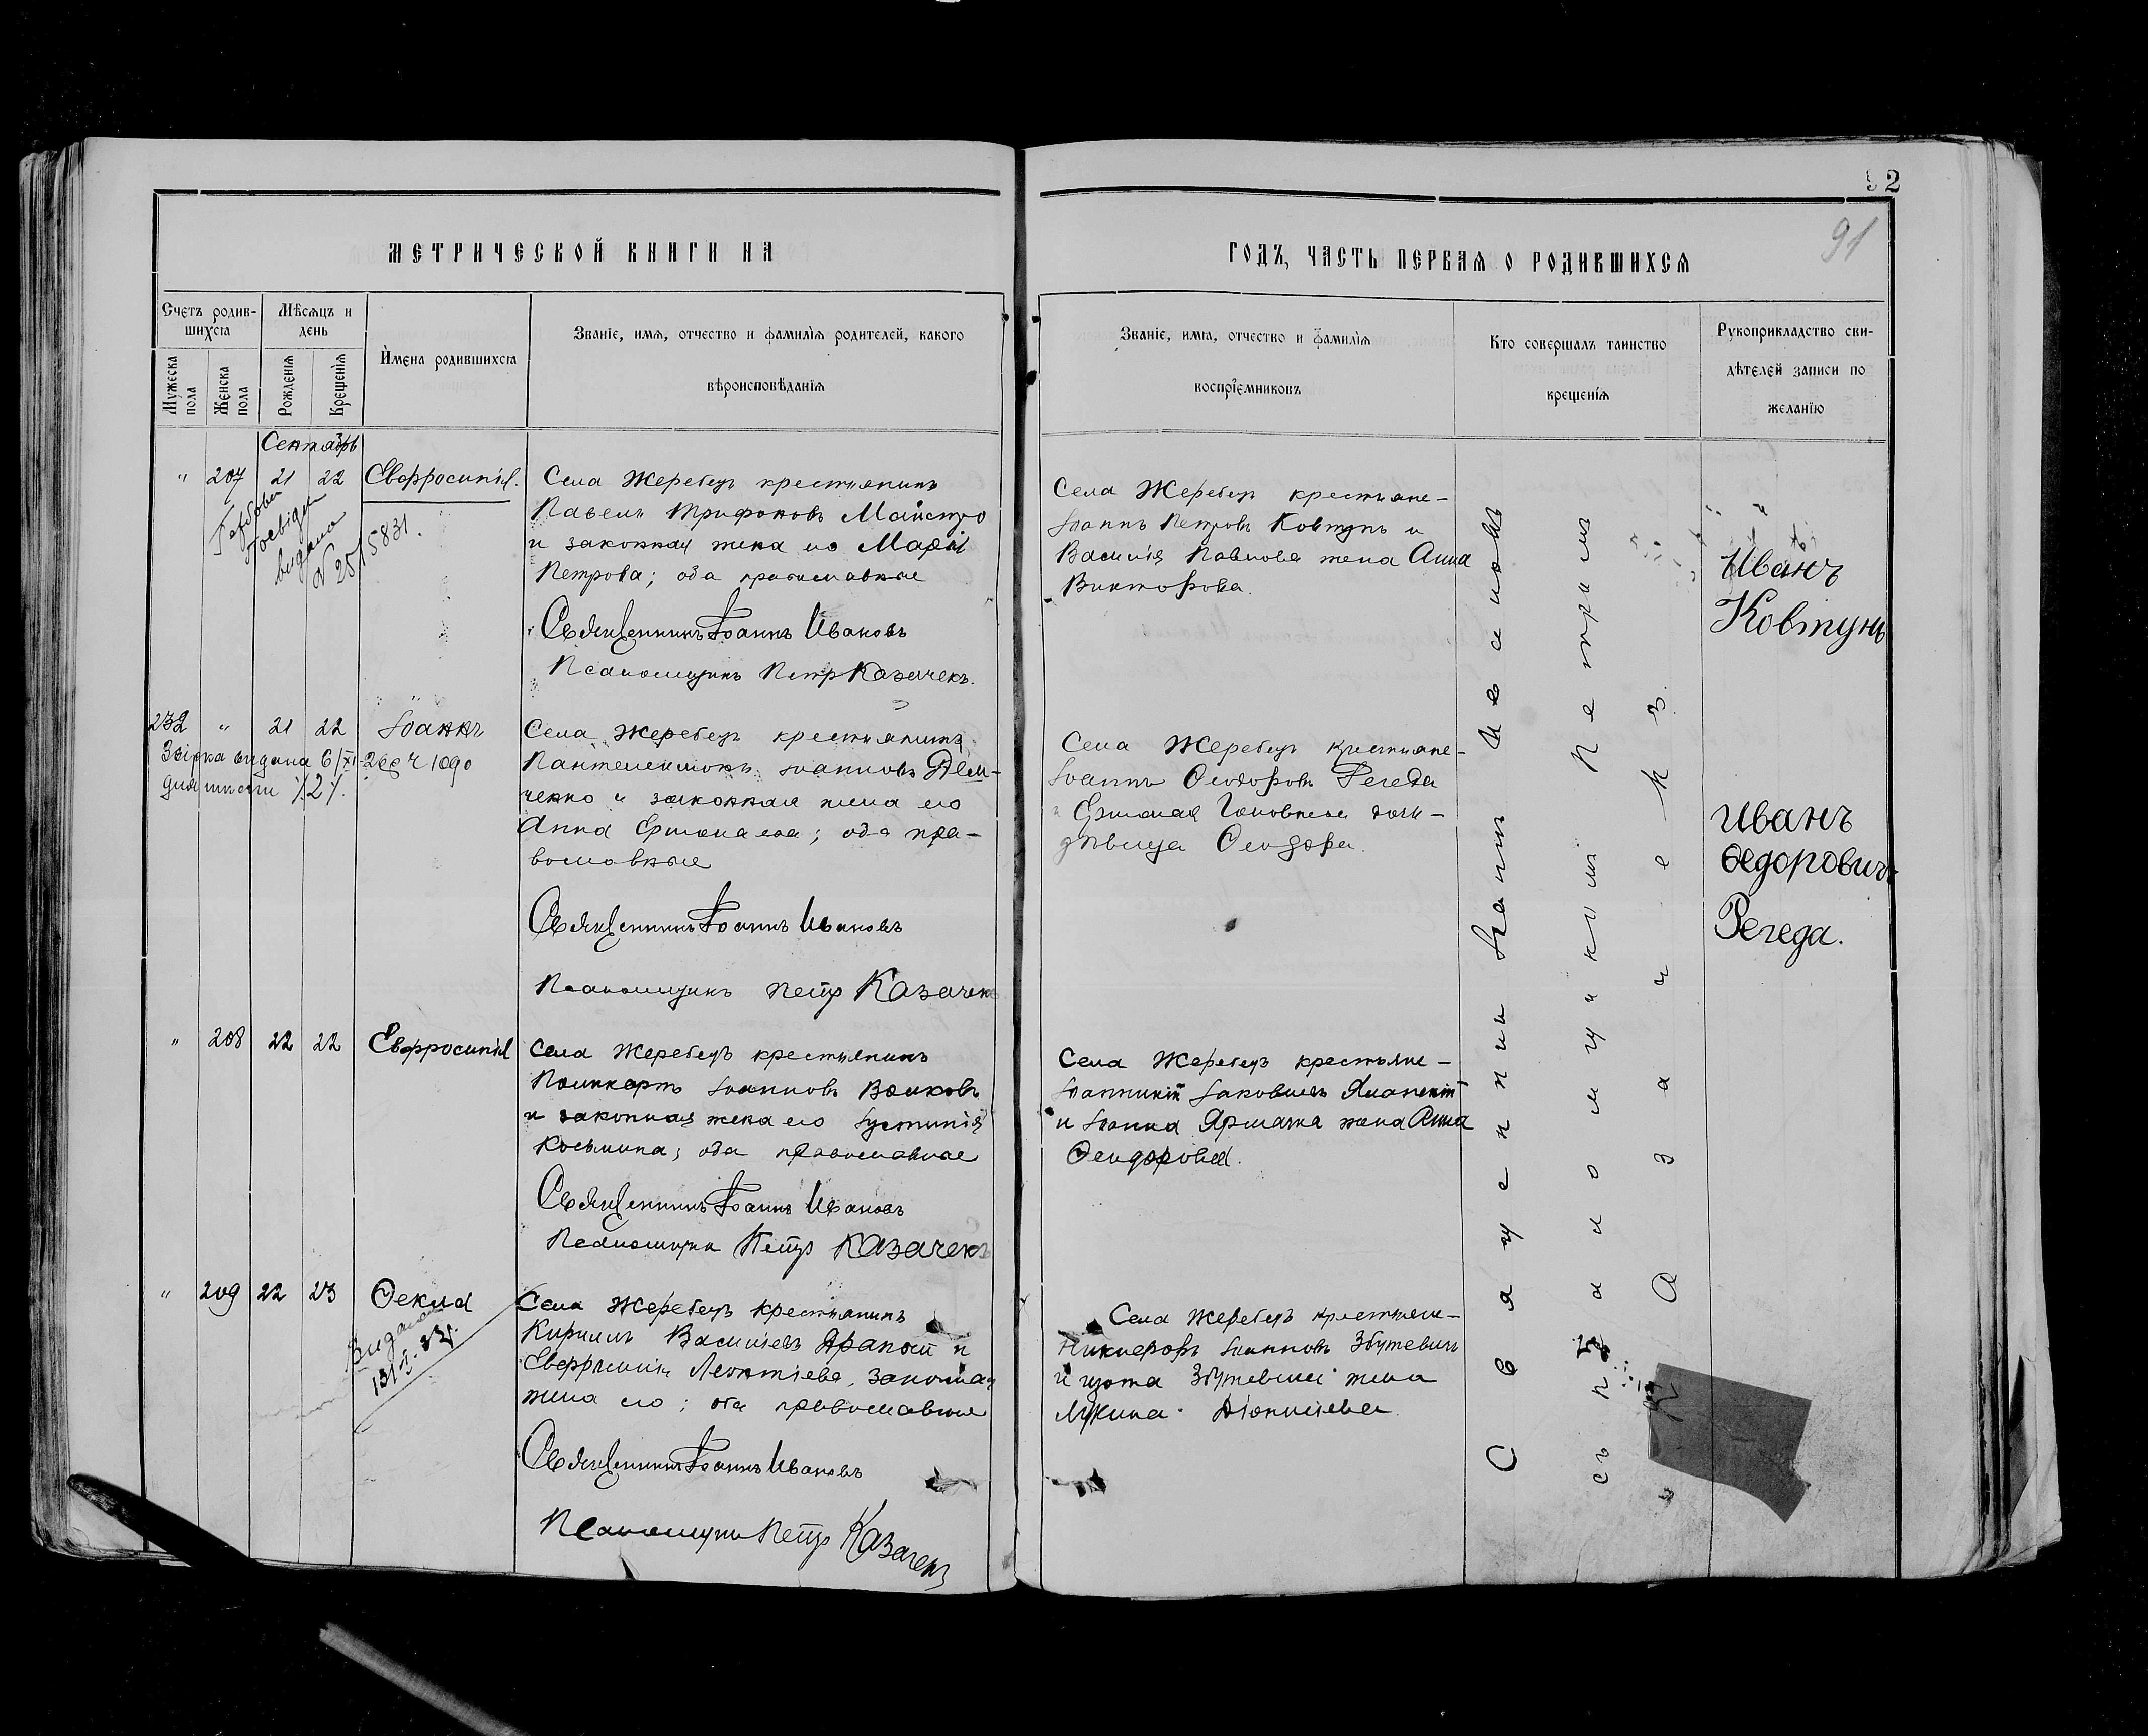 92
91
МЕТРИЧЕСКОЙ КНИГИ НА
ГОДЪ, ЧАСТЬ ПЕРВАЯ О РОДИВШИХСЯ
Счетъ родив-
шихся
Мѣсяцъ и
день
Мужеска пола
Женска пола
Рожденія
Крещенія
Имена родившихся
Званіе, имя, отчество и фамилія родителей, какого
вѣроисповѣданія
Званіе, имя, отчество и фамилія
воспріемниковъ
Кто совершалъ таинство
крещенія
Рукоприкладство сви-
дѣтелей записи по
желанію
Сентябрь
" 207 21 22 Евфросинія.
видана
№ 25/15831.
Села Жеребецъ крестьянинъ
Павелъ Трифоновъ Майстро
и законная жена его Марія
Петрова; оба православные
Священникъ Іоаннъ Ивановъ
Псаломщикъ Петръ Казачекъ.
Села Жеребецъ крестьяне-
Іоаннъ Петровъ Ковтунъ и
Василія Павлова жена Анна
Викторова.
Иванъ
Ковтунъ
232 " 21 22 Іоаннъ
видана 6/XI
Села Жеребецъ крестьянинъ
Пантелеимонъ Іоанновъ Дем-
ченко и законная жена его
Анна Ермолаева; оба пра-
вославные
Священникъ Іоаннъ Ивановъ
Псаломщикъ Петръ Казачекъ
Села Жеребецъ крестьяне-
Іоаннъ Ѳеодоровъ Регеда
Ермолая дочь-
дѣвица Ѳеодора.
Иванъ
Ѳедоровичъ
Регеда.
" 208 22 22 Евфросинія
Села Жеребецъ крестьянинъ
Поликарпъ Іоанновъ Волковъ
и законная жена его Іустинія
Косьмина; оба православные
Священникъ Іоаннъ Ивановъ
Псаломщикъ Петръ Казачекъ
Села Жеребецъ крестьяне-
Іоанникій Іаковлевъ
и Іоанна жена Анна
Ѳеодорова.
" 209 22 23 Ѳекла
Видана
Села Жеребецъ крестьянинъ
Кириллъ Васильевъ и
Евфросинія Леонтіева, законная
жена его; оба православные
Священникъ Іоаннъ Ивановъ
Псаломщикъ Петръ Казачекъ
Села Жеребецъ крестьяне-
Никифоръ Іоанновъ Збутевичъ
жена
Діонисіева
Священникъ Іоаннъ Ивановъ
съ псаломщикомъ Петромъ
Казачекъ.